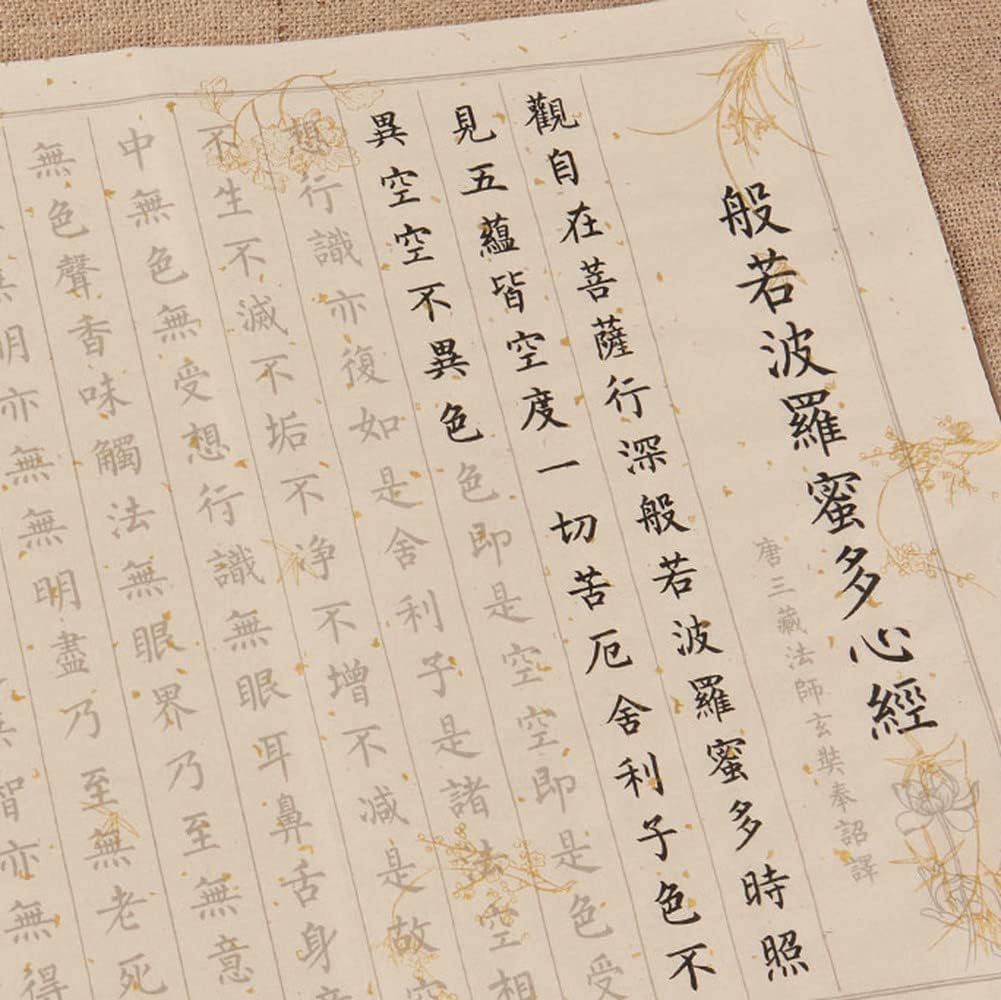 般若波羅蜜多心經
唐三藏法師玄奘奉詔譯
觀自在菩薩行深般若波羅蜜多時照
見五蘊皆空度一切苦厄舍利子色不
異空空不異色色即是空空即是色受
想行識亦復如是舍利子是諸法空相
不生不滅不垢不净不增不減是故空
中無色無受想行識無眼耳鼻舌身
無色聲香味觸法無眼界乃至無意
明亦無無明盡乃至無老死
智亦無得